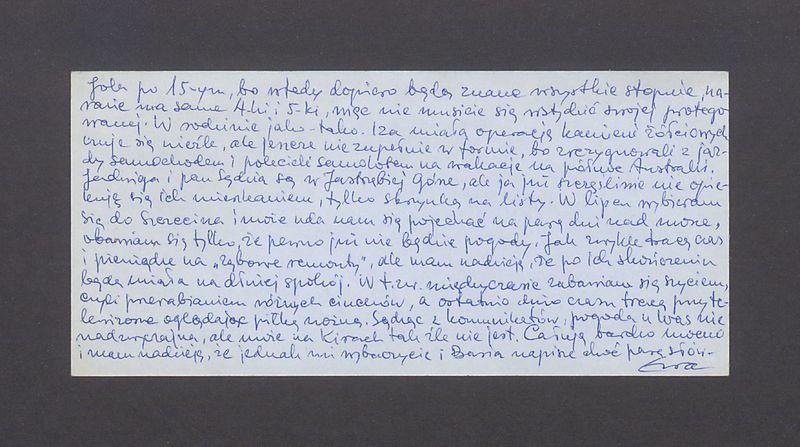 Jola po 15-ym, bo wtedy dopiero będą znane wszystkie stopnie, na-
razie ma same 4-ki i 5-ki, więc nie musicie się wstydzić swojej protego-
wanej. W rodzinie jako-tako. Iza miała operację kamieni żółciowych
czuje się nieźle, ale jeszcze niezupełnie w formie, bo zrezygnowali z jaz-
dy samochodem i polecieli samolotem na wakacje na północ Australii.
Jadwiga i pan Sędzia są w Jastrzębiej Górze, ale ja już szczęśliwie nie opie-
kuję się ich mieszkaniem, tylko skrzynką na listy. W lipcu wybieram
się do Szczecina i może uda nam się pojechać na parę dni nad morze,
obawiam się tylko, że pewno już nie będzie pogody. Jak zwykle tracę czas
i pieniądze na „zębowe remonty”, ale mam nadzieję, że po ich skończeniu
będę miała na dłużej spokój. W t.zw. międzyczasie zabawiam się szyciem,
czyli przerabianiem różnych ciuchów, a ostatnio dużo czasu tracę przy te-
lewizorze oglądając piłkę nożną. Sądząc z komunikatów, pogoda u Was nie
nadzwyczajna, ale może na Kirach tak źle nie jest. Całuję bardzo mocno
i mam nadzieję, że jednak mi wybaczycie i Basia napisze choć parę słów.
Ewa